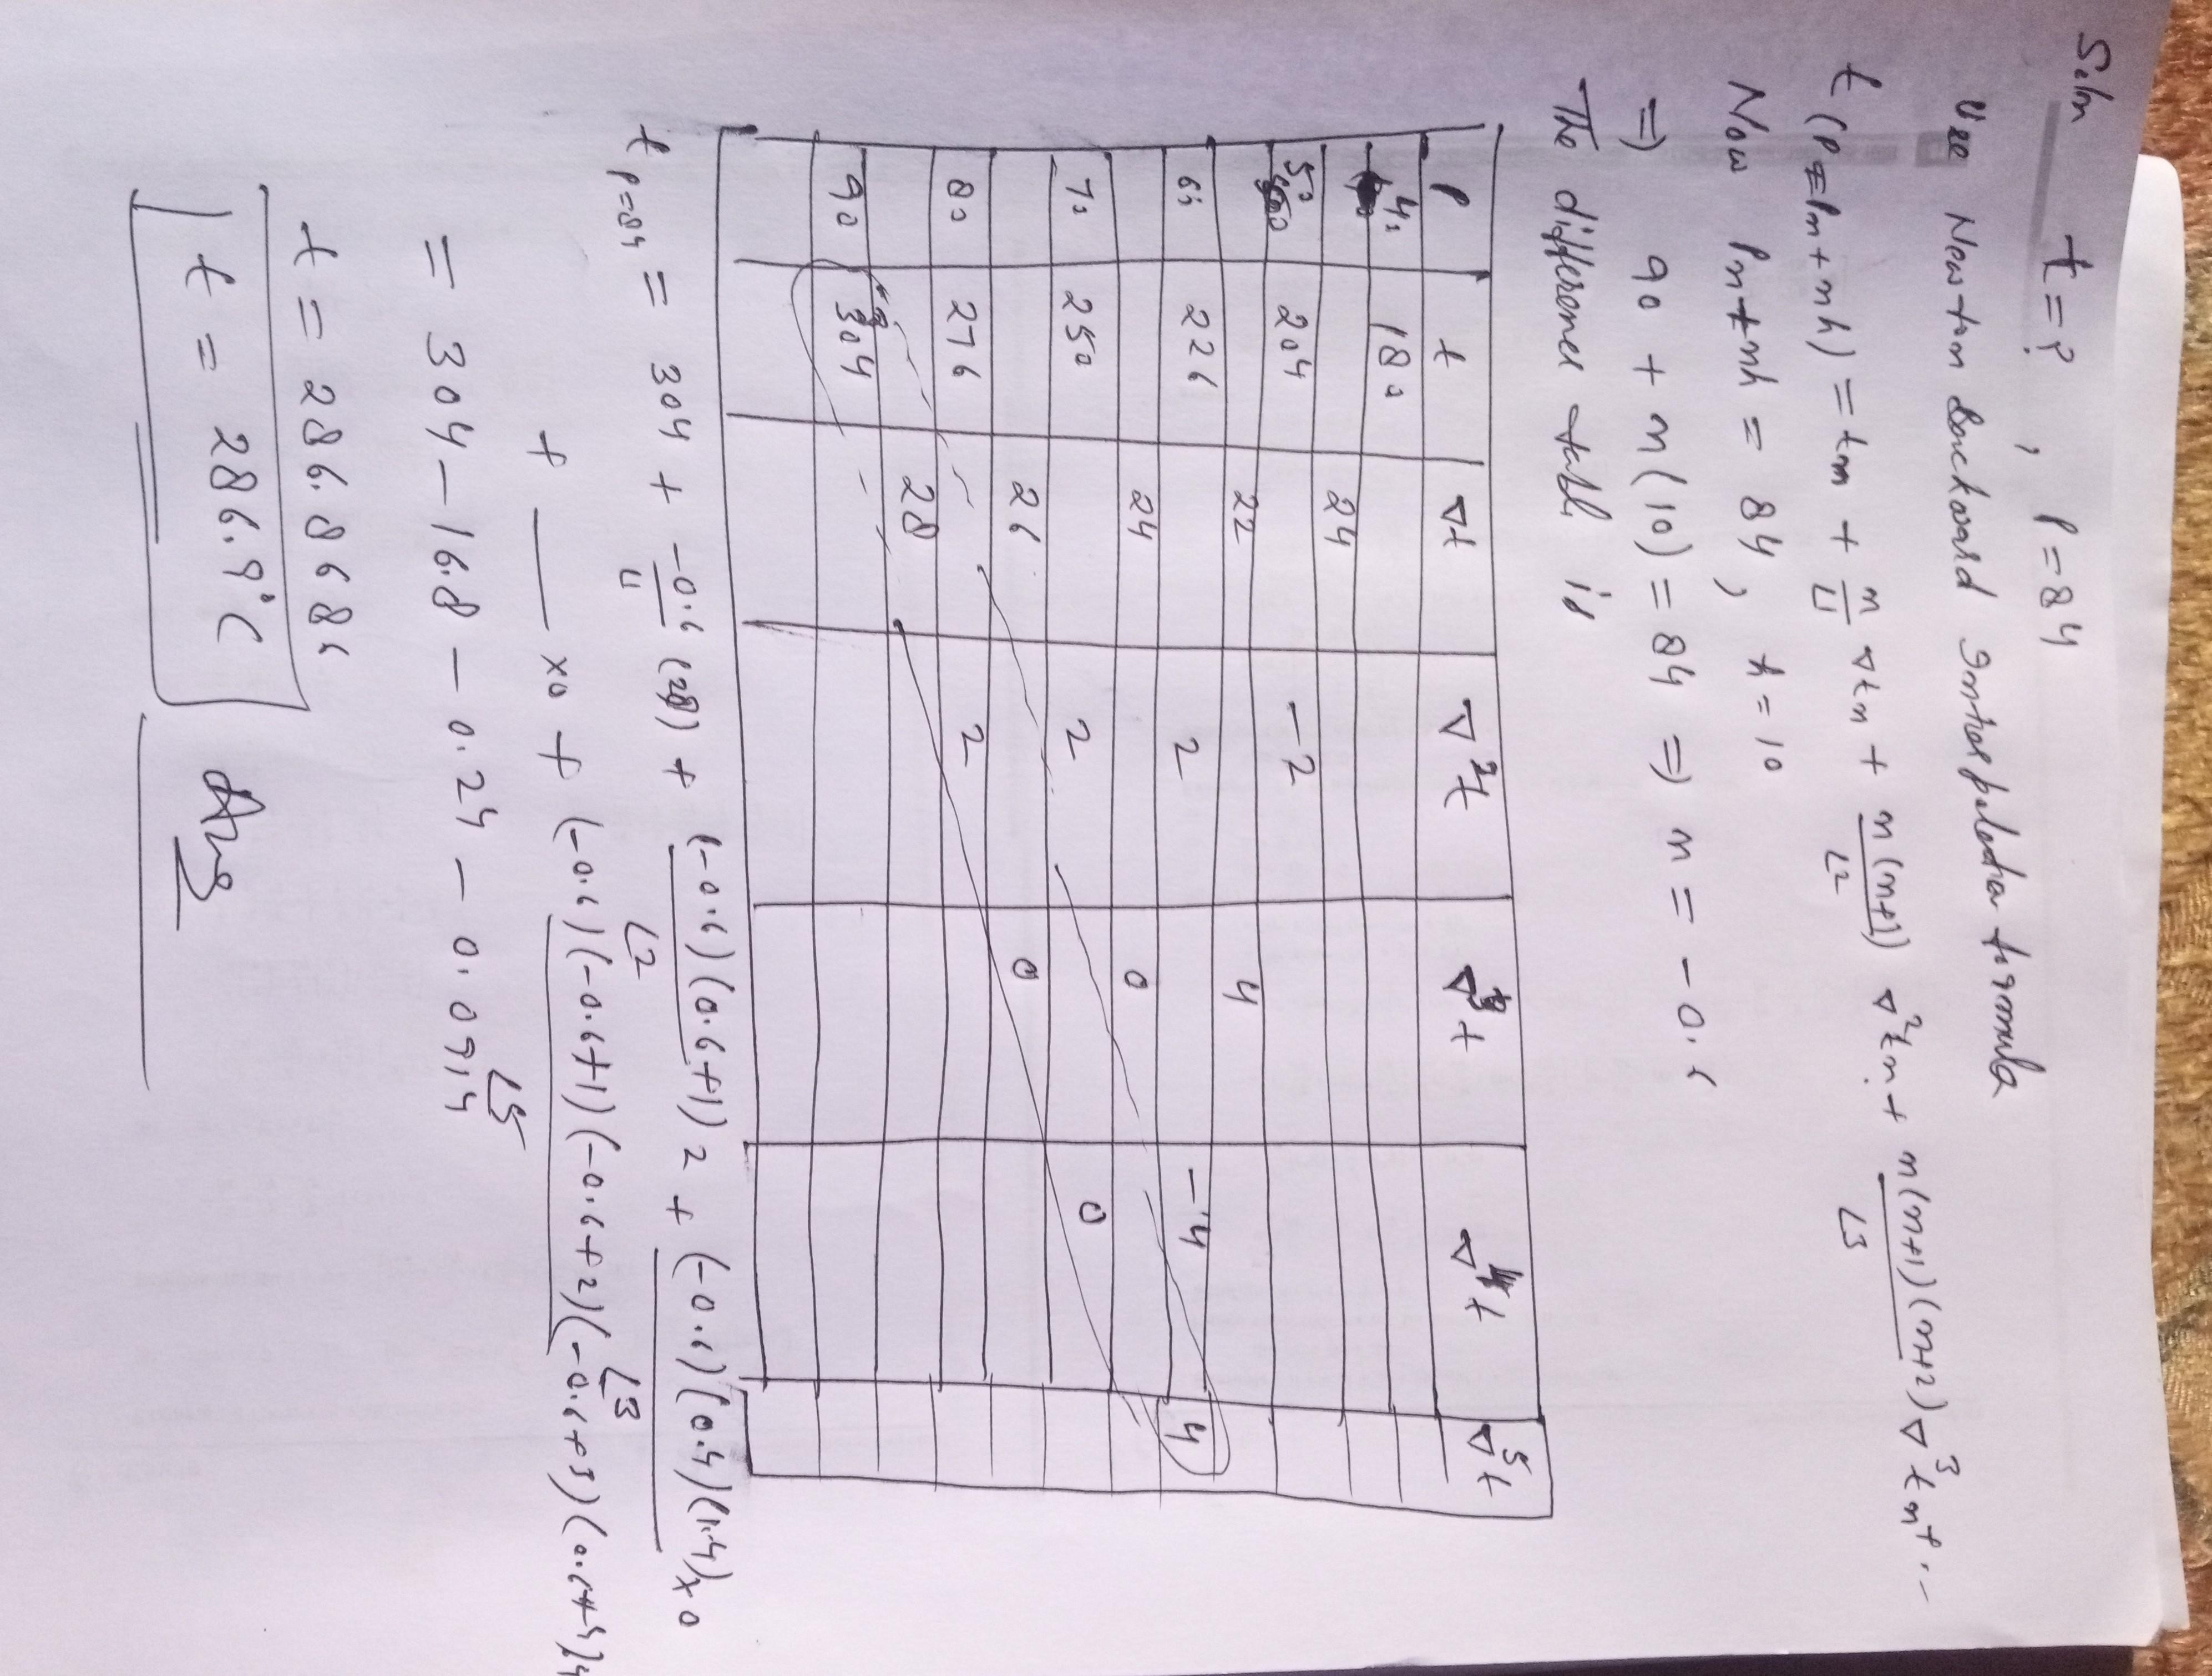 Soln t = ? , P = 84
Use Newton Backward Interpolation formula
t(P = Pn + nh) = tn + n/∟1 ∇tn + n(n+1)/∟2 ∇²tn + n(n+1)(n+2)/∟3 ∇³tn + ...
Now Pn + nh = 84, h = 10
⇒ 90 + n(10) = 84 ⇒ n = -0.6
The difference table is
P t ∇t ∇²t ∇³t ∇⁴t ∇⁵t
40 180
24
50 204 -2
22 4
60 226 2 -4
24 0 4
70 250 2 0
26 0
80 276 2
28
90 304
t P=84 = 304 + -0.6/∟1 (28) + (-0.6)(0.6+1)/∟2 2 + (-0.6)(0.4)(1.4)/∟3 × 0
+ ___ ×0 + (-0.6)(-0.6+1)(-0.6+2)(-0.6+3)(0.6+4)4/∟5
= 304 - 16.8 - 0.24 - 0.0914
t = 286.8686
t = 286.9°C Ans